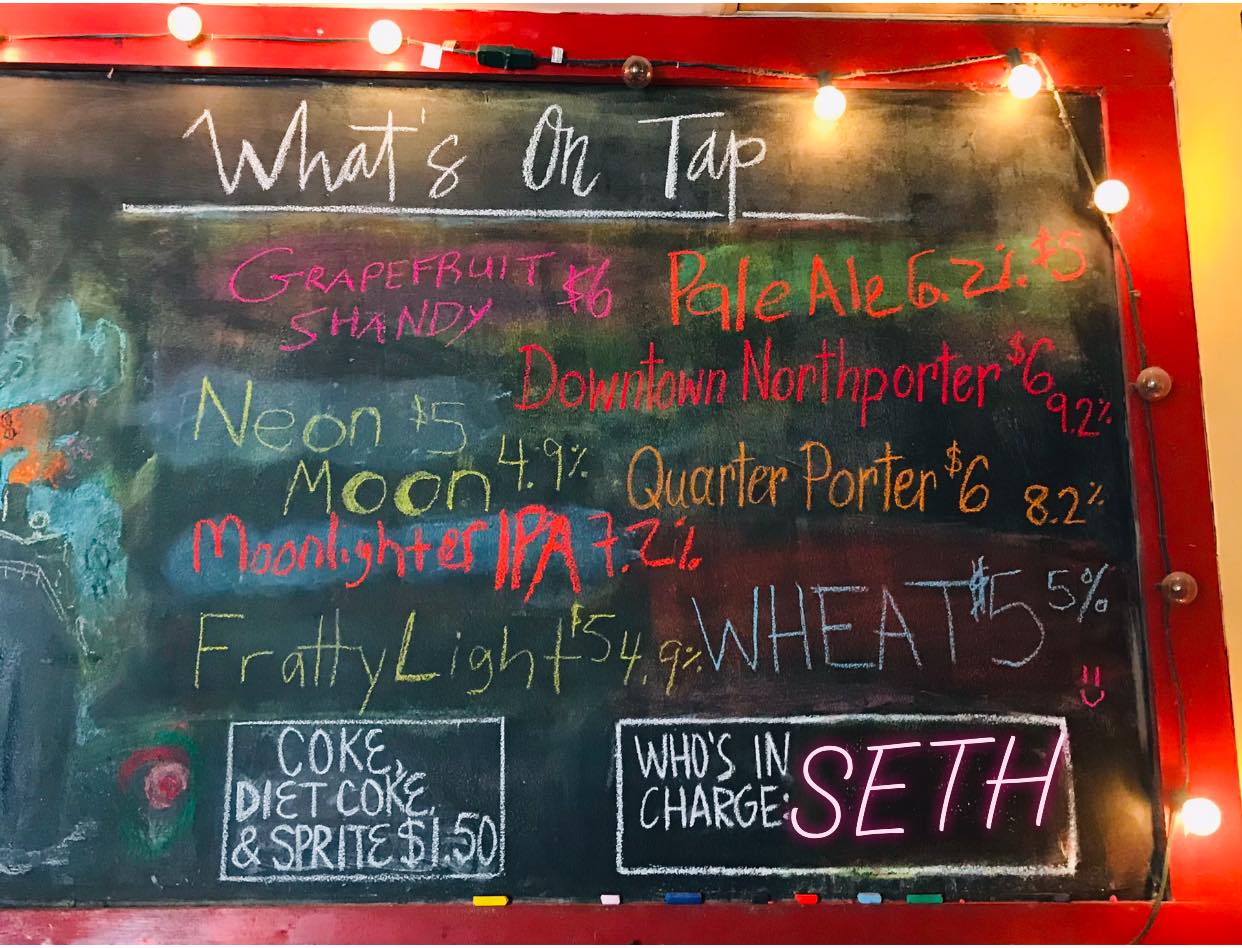 What's On Tap
GRAPEFRUIT $6
SHANDY
Pale Ale 6.2% $5
Downtown Northporter $6
9.2%
Neon $5
Moon 4.9%
Quarter Porter $6 8.2%
Moonlighter IPA 7.2%
Fratty Light $5 4.9%
WHEAT $5 5%
COKE,
DIET COKE,
& SPRITE $1.50
WHO'S IN
CHARGE:
SETH